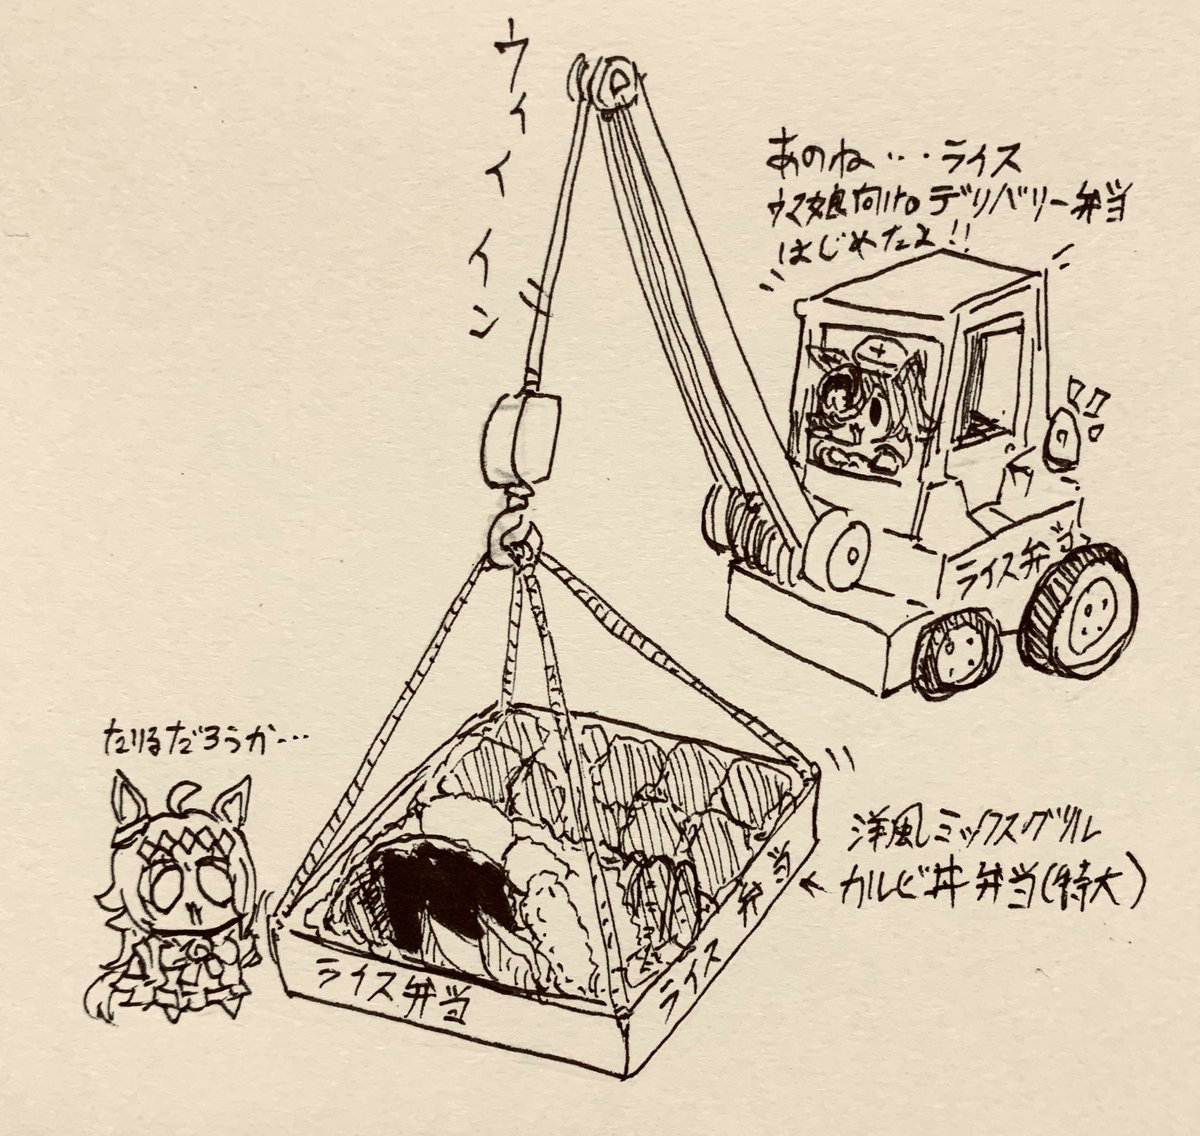 ウィイイイン
あのね・・・ライス
ウマ娘向けデリバリー弁当
はじめたよ!!
ライス弁当
たりるだろうか・・・
洋風ミックスグリル
カルビ丼弁当(特大)
ライス弁当
ライス弁当